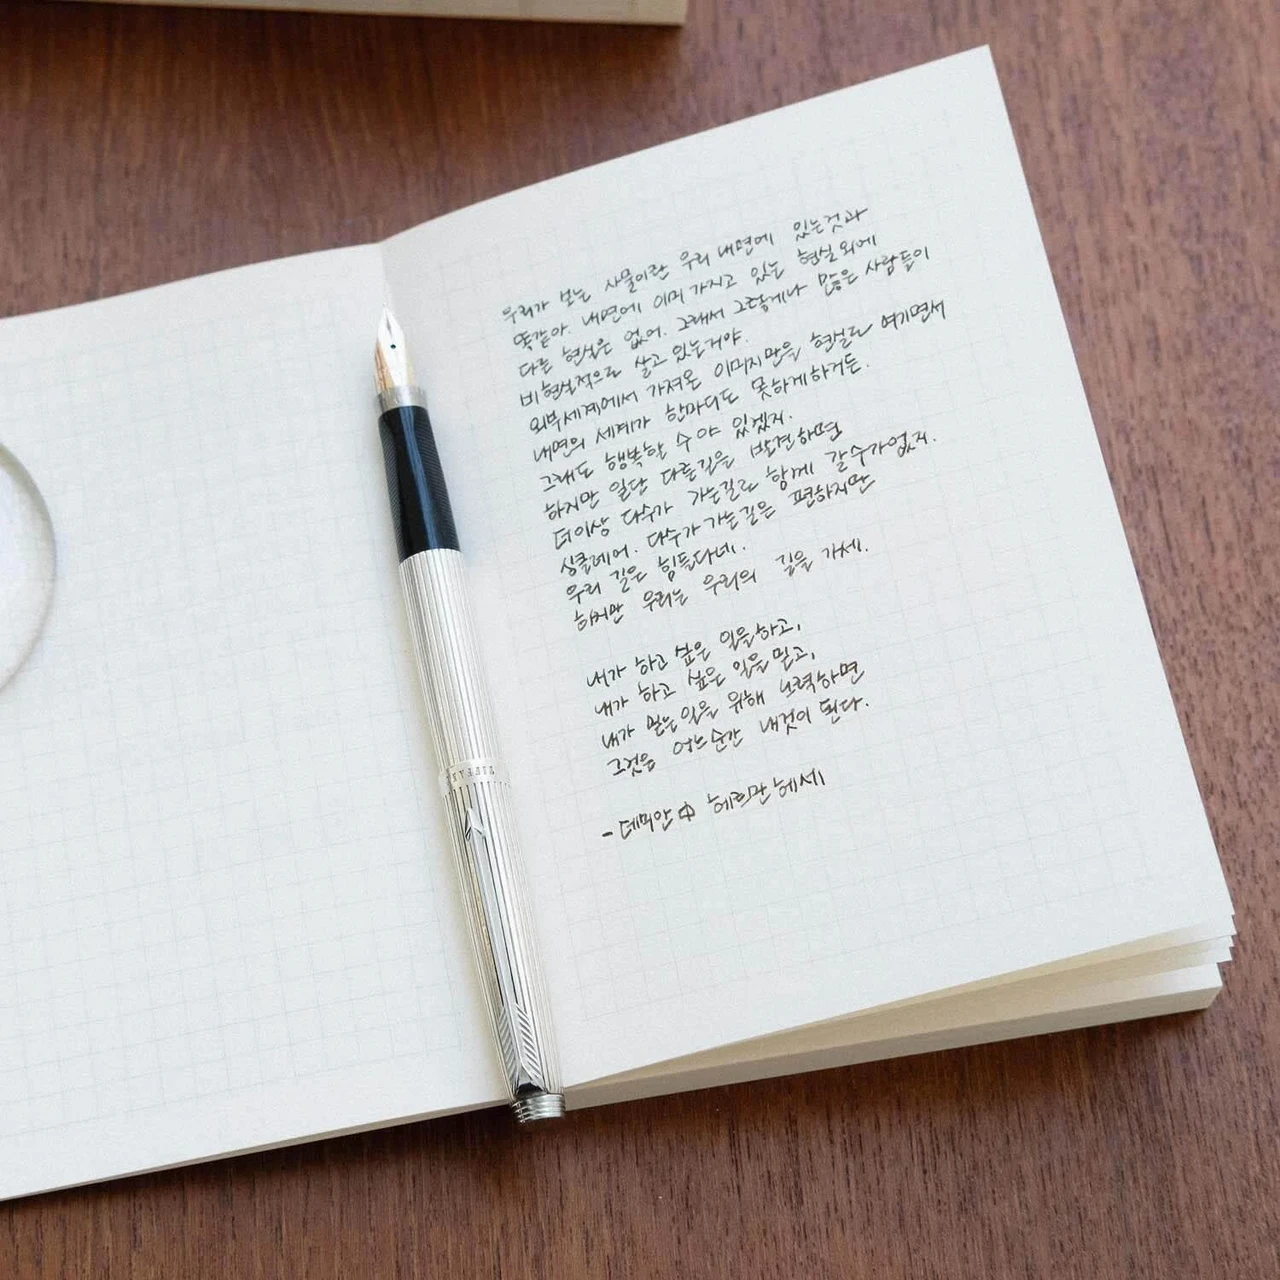 우리가 보는 사물이란 우리 내면에 있는것과
똑같아. 내면에 이미 가지고 있는 현실외에
다른 현실은 없어. 그래서 그렇게나 많은 사람들이
비현실적으로 살고 있는거야.
외부세계에서 가져온 이미지만을 현실로 여기면서
내면의 세계가 한마디도 못하게하거든.
그래도 행복할 수야 있겠지.
하지만 일단 다른길을 발견하면
더이상 다수가 가는길로 함께 갈수가없지.
싱클레어. 다수가 가는길은 편하지만
우리 길은 힘들다네.
하지만 우리는 우리의 길을 가세.
내가 하고 싶은 일을하고,
내가 하고 싶은 일을 믿고,
내가 믿는일을 위해 노력하면
그것은 어느순간 내것이 된다.
- 데미안 中 헤르만헤세